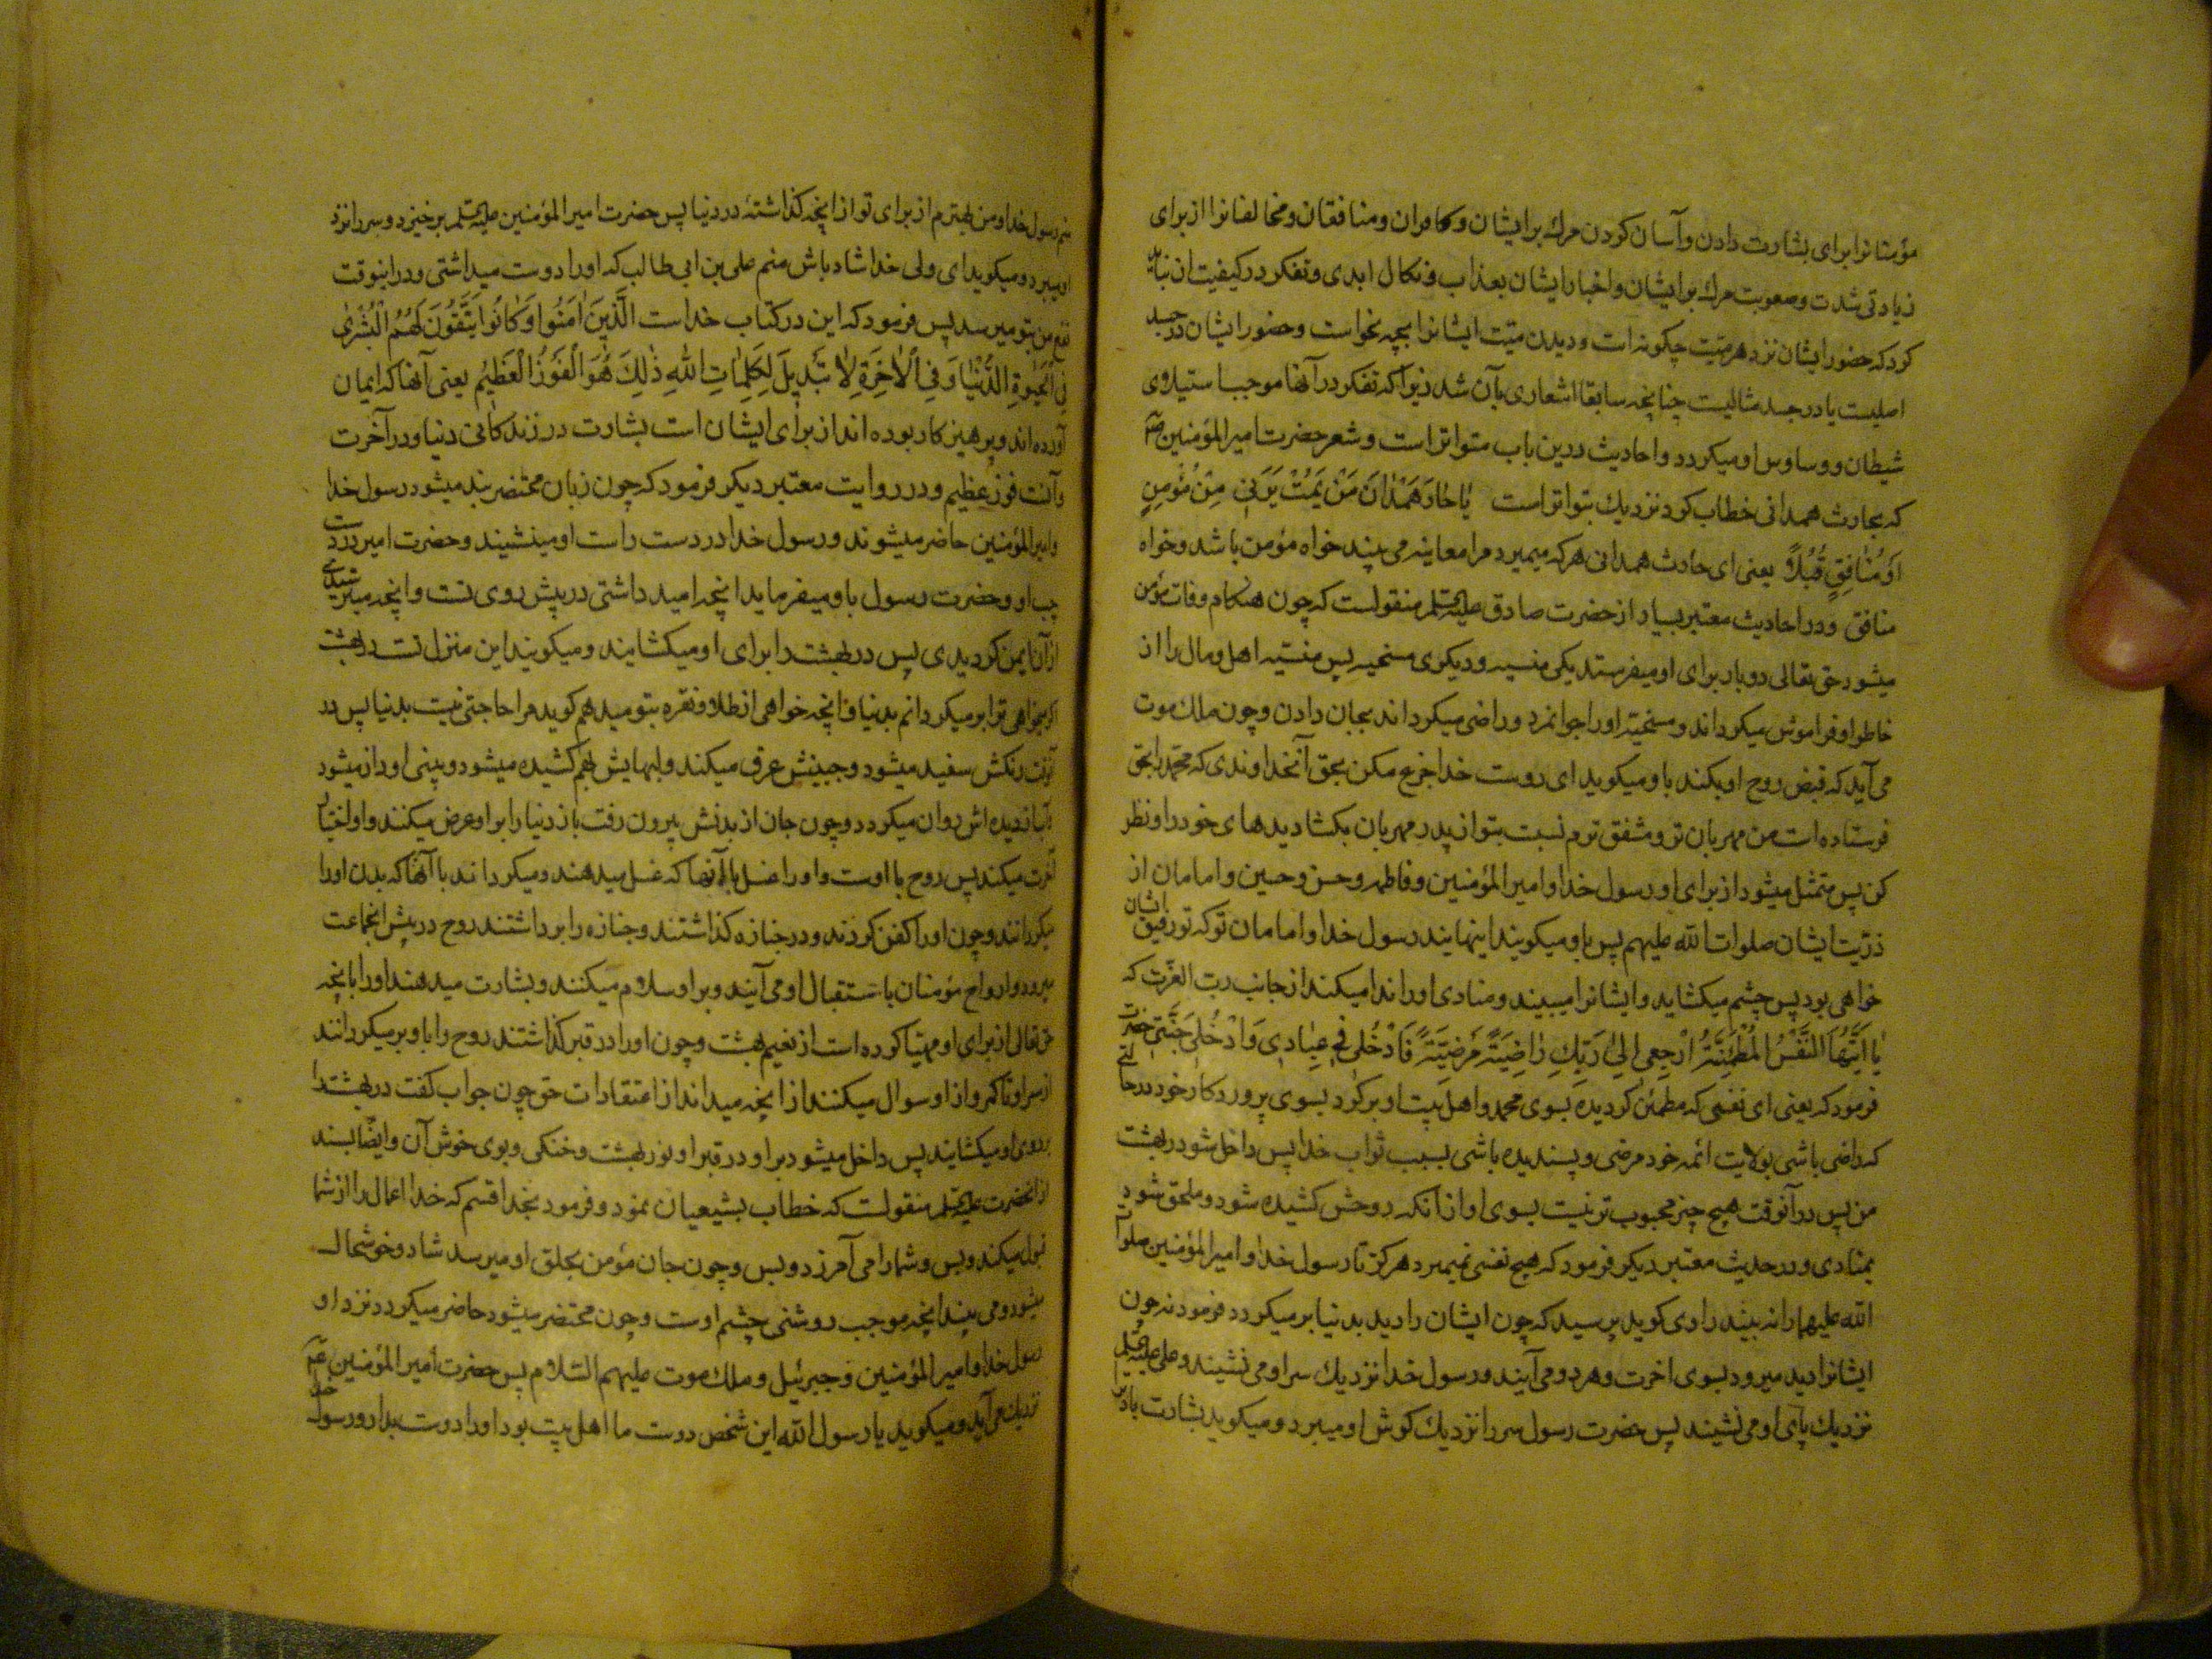 مؤمنانرا برای بشارت دادن و آسان کردن مرك بر ایشان و کافران و منافقان و مخالفانرا از برای
زیادتی شدت و صعوبت مرك بر ایشان و اخبار ایشان بعذاب و نکال ابدی و تفکر در کیفیت ان نباید
کرد که حضور ایشان نزد هر میّت چکونه است و دیدن میّت ایشانرا بچه نحو است و حضور ایشان در جسد
اصلیست یا در جسد مثالیست چنانچه سابقا اشعاری بآن شد زیرا که تفکر در آنها موجب استیلای
شیطان و وساوس او میکردد و احادیث درین باب متواتر است و شعر حضرت امیر المؤمنین ع
که بحارث همدانی خطاب کرد نزدیك بتواتر است یا حار همدان من یمت یرنی من مؤمن
او منافق قبلا یعنی ای حارث همدانی هر که میمیرد مرا معاینه می بیند خواه مؤمن باشد و خواه
منافق و در احادیث معتبر بسیار از حضرت صادق منقولست که چون هنکام وفات مؤمن
میشود حق تعالی دو باد برای او میفرستد یکی منسیه و دیکری مسخیه پس منسیه اهل و مال را از
خاطر او فراموش میکرداند و مسخیه او را جوانمرد و راضی میکرداند بجان دادن و چون ملك موت
می آید که قبض روح او بکند باو میکوید ای دوست خدا جزع مکن بحق آنخداوندی که محمد را بحق
فرستاده است من مهربان تر و مشفق ترم نسبت بتو از پدر مهربان بکشا دیدهای خود را و نظر
کن پس متمثل میشود از برای او رسول خدا و امیر المؤمنین و فاطمه و حسن و حسین و امامان از
ذریّت ایشان صلوات الله علیهم پس باو میکویند اینهایند رسول خدا و امامان تو که تو رفیق ایشان
خواهی بود پس چشم میکشاید و ایشانرا میبیند و منادی او را ندا میکند از جانب رب العزّت که
یا ایّتها النّفس المطمئنّة ارجعی الی ربّك راضیة مرضیّة فادخلی فی عبادی و ادخلی جنّتی حضرت
فرمود که یعنی ای نفسی که مطمئن کردیده بسوی محمد و اهل بیت او برکرد بسوی پروردکار خود در حالتی
که راضی باشی بولایت ائمه خود مرضی و پسندیده باشی بسبب ثواب خدا پس داخل شو در بهشت
من پس در آنوقت هیچ چیز محبوب تر نیست بسوی او از انکه روحش کشیده شود و ملحق شود
بمنادی و در حدیث معتبر دیکر فرمود که هیچ نفسی نمیمیرد هرکز تا رسول خدا و امیر المؤمنین صلوات
الله علیهما را نه بیند راوی کوید پرسید که چون ایشان را دید بدنیا برمیکردد فرمود نه چون
ایشانرا دید میرود بسوی اخرت و هر دو می آیند و رسول خدا نزدیك سر او می نشیند و علی
نزدیك پای او می نشیند پس حضرت رسول سر را نزدیك کوش او میبرد و میکوید بشارت باد
منم رسول خدا و من بهترم از برای تو از انچه کذاشتهٔ در دنیا پس حضرت امیر المؤمنین برخیزد و سر را نزد
او میبرد و میکوید ای ولی خدا شاد باش منم علی بن ابی طالب که او را دوست میداشتی و در اینوقت
نفع من بتو میرسد پس فرمود که این در کتاب خداست الّذین امنوا و کانوا یتّقون لهم البشری
فی الحیوة الدّنیا و فی الاخرة لا تبدیل لکلمات الله ذلك هو الفوز العظیم یعنی آنها که ایمان
آورده اند و پرهیز کار بوده اند از برای ایشان است بشارت در زندکانی دنیا و در آخرت
و آنست فوز عظیم و در روایت معتبر دیکر فرمود که چون زبان محتضر بند میشود رسول خدا
و امیر المؤمنین حاضر میشوند و رسول خدا در دست راست او مینشیند و حضرت امیر در دست
چپ او و حضرت رسول باو میفرماید انچه امید داشتی در پیش روی تست و انچه میترسیدی
از آن ایمن کردیدی پس در بهشت را برای او میکشایند و میکویند این منزل تست در بهشت
اکر میخواهی ترا بر میکردانم بدنیا و انچه خواهی از طلا و نقره بتو میدهم کوید مرا حاجتی نیست بدنیا پس در
آنوقت رنکش سفید میشود و جبینش عرق میکند و لبهایش بهم کشیده میشود و بینی او دراز میشود
و آب از دیده اش روان میکردد و چون جان از بدنش بیرون رفت باز دنیا را بر او عرض میکنند و او اختیار
آخرت میکند پس روح با اوست و او را غسل با آنها که غسل میدهند و میکرداند با آنها که بدن او را
میکردانند و چون او را کفن کردند و در جنازه کذاشتند و جنازه را برداشتند روح در پیش انجماعت
میرود و ارواح مؤمنان باستقبال او می آیند و بر او سلام میکنند و بشارت میدهند او را بانچه
حق تعالی از برای او مهیّا کرده است از نعیم بهشت و چون او را در قبر کذاشتند روح را باو بر میکردانند
از سر او تا کمر و از او سوال میکنند از انچه میداند از اعتقادات حق چون جواب کفت در بهشت را
بر روی او میکشایند پس داخل میشود بر او در قبر او نور بهشت و خنکی و بوی خوش آن و ایضا بسند
از انحضرت منقولست که خطاب بشیعیان نمود و فرمود بخدا قسم که خدا اعمال را از شما
قبول میکند و بس و شما را می آمرزد و بس و چون جان مؤمن بحلق او میرسد شاد و خوشحال
میشود و می بیند انچه موجب روشنی چشم اوست و چون محتضر میشود حاضر میکردد نزد او
رسول خدا و امیر المؤمنین و جبرئیل و ملك موت علیهم السّلام پس حضرت امیر المؤمنین ع
نزدیك می آید و میکوید یا رسول الله این شخص دوست ما اهل بیت بود او را دوست بدار و رسول خدا